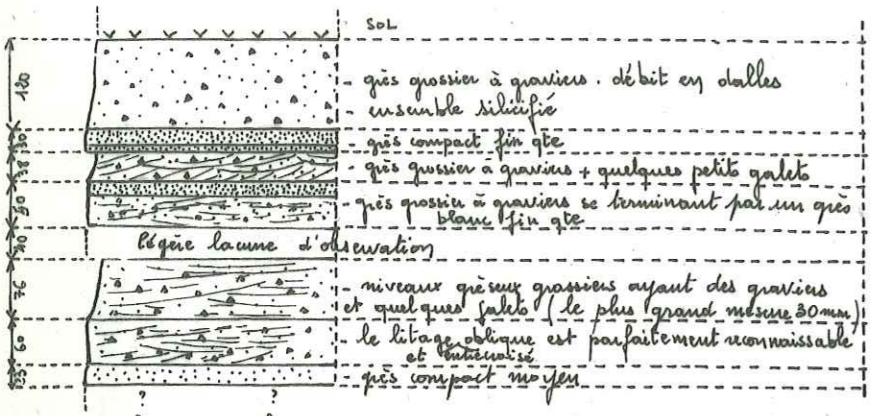 SOL
120
- grès grossier à graviers. débit en dalles
- ensemble silicifié
30
- grès compact fin qte
38
grès grossier à graviers + quelques petits galets
50
- grès grossier à graviers se terminant par un grès
blanc fin qte
40
légère lacune d'observation
76
- niveaux gréseux grossiers ayant des graviers
et quelques galets (le plus grand mesure 30mm)
60
- le litage oblique est parfaitement reconnaissable
et entrecroisé
23
- grès compact moyen
? ?